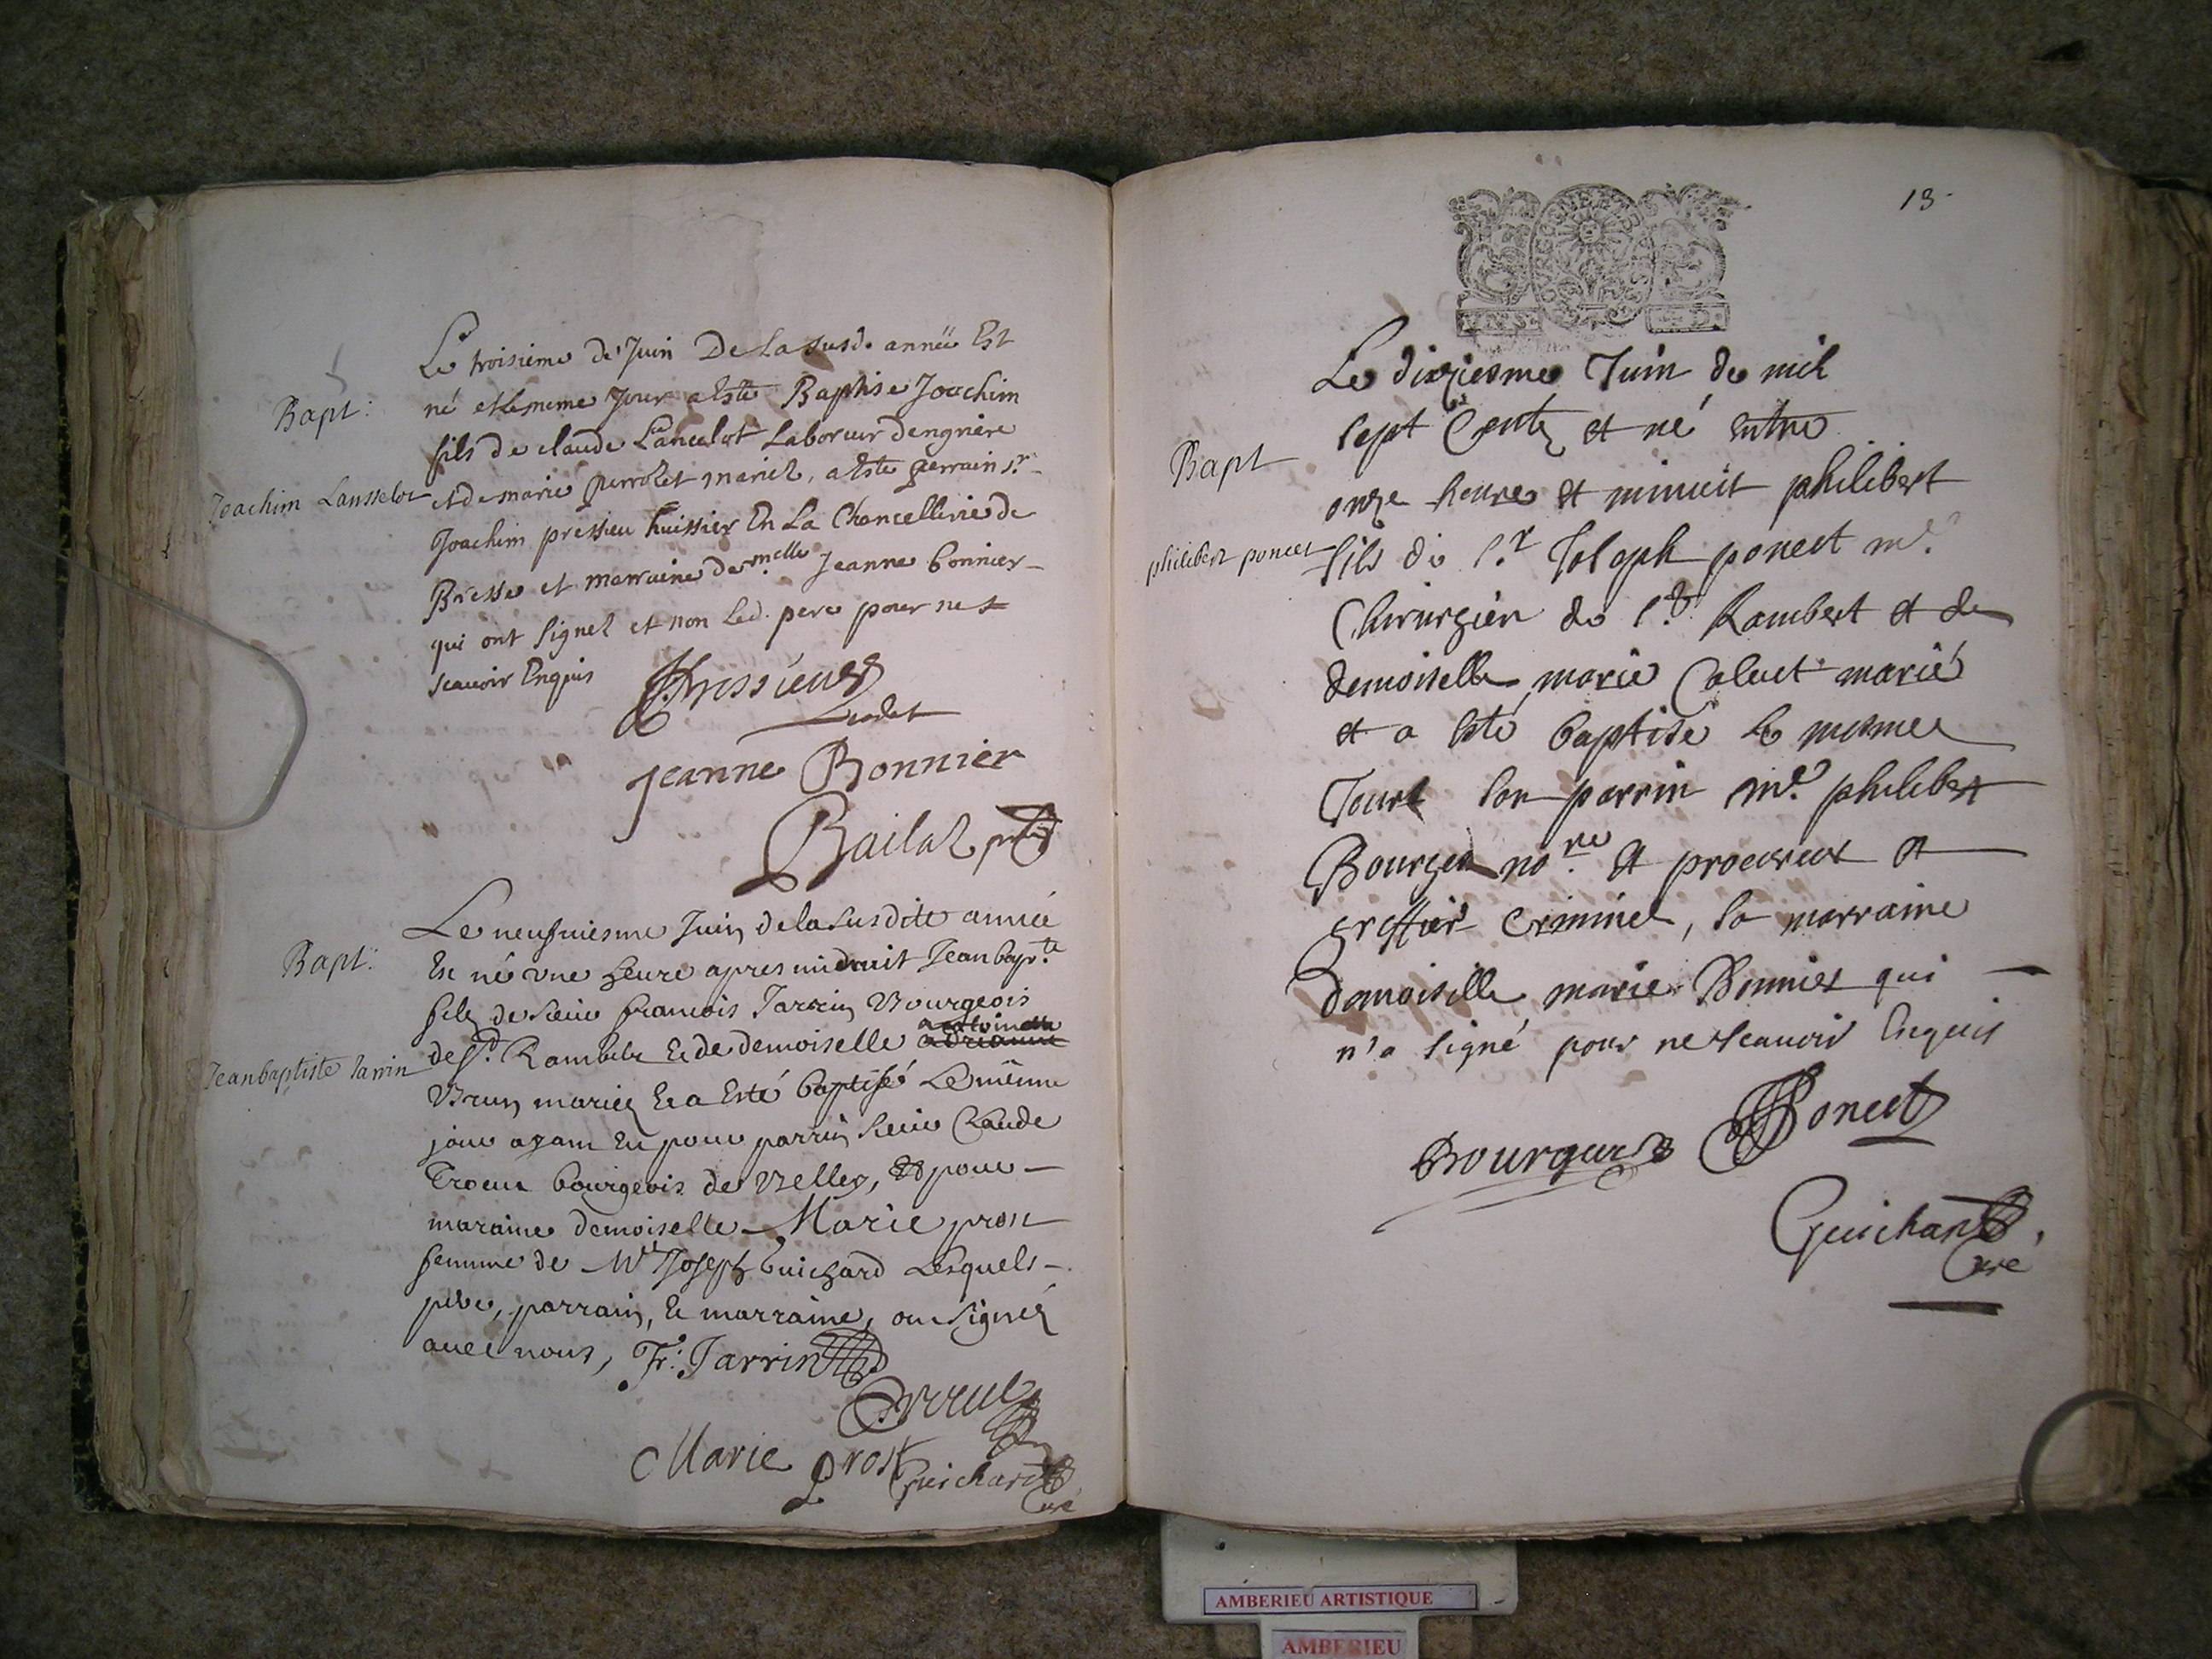 Le troisieme de Juin De la susd. année Est
né et le meme Jour a este Baptise Joachim
fils de claude Lancelot Laboreur dengriere
et de marie perrolet mariez, a este perrain Sr.
Joachim pressieu huissier En La Chancellerie de
Bresse et marraine demelle Jeanne bonnier
qui ont signez et non Led. pere pour ne
scauoir Enquis
Bapt:
Joachim Lansselot
Jeanne Bonnier
Bailat
Le neufuiesme Juin de la susdite année
Est né vne heure apres midnuit Jean bapt.te
filz de sieur francois Jarrin Bourgeois
de St. Rambert & de demoiselle
Brun mariez & a Esté baptisé Le même
jour ayant Eu pour parrin sieur Claude
bourgeois de Belley, & pour
maraine demoiselle Marie prost
femme de Mr Joseph Guichard Lesquels
pere, parrain, & marraine, ont signéz
auec nous, Fr: Jarrin
Bapt:
Jean baptiste Jarrin
Marie Prost
Guichard
Curé
13
Le dixiesme Juin de mil
sept Centz et né entre
onze heures et minuit philibert
fils de Sr. Joseph poncet me.
Chirurgien de St. Rambert et de
demoiselle marie Caluet marié
et a esté baptisé le mesme
Jour son parrin me. philibert
Bourgeu no.re et procureur et
greffier Criminel, sa marraine
demoiselle marie Bonnier qui
n'a signé pour ne scauoir Enquis
Bapt
philibert poncet
Poncet
Guichard
Curé
AMBERIEU ARTISTIQUE
AMBERIEU